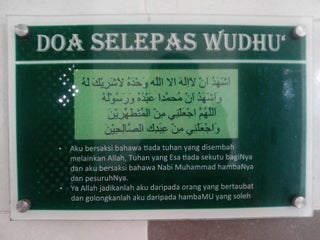 DOA SELEPAS WUDHU'
اَشْهَدُ اَنْ لَااِلَهَ اِلَّا اللّٰه وَحْدَهُ لَاشَرِيْكَ لَهُ
وَاَشْهَدُ اَنَّ مُحَمَّدًا عَبْدُهُ وَرَسُوْلُهُ
اَللّٰهُمَّ اجْعَلْنِي مِنَ الْمُتَطَهِّرِيْنَ
وَاجْعَلْنِي مِنْ عِبَادِكَ الصَّالِحِيْنَ
• Aku bersaksi bahawa tiada tuhan yang disembah
melainkan Allah, Tuhan yang Esa tiada sekutu bagiNya
dan aku bersaksi bahawa Nabi Muhammad hambaNya
dan pesuruhNya.
• Ya Allah jadikanlah aku daripada orang yang bertaubat
dan golongkanlah aku daripada hambaMU yang soleh